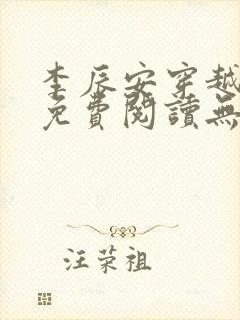 李辰安穿越
免費閱讀無
汪荣祖